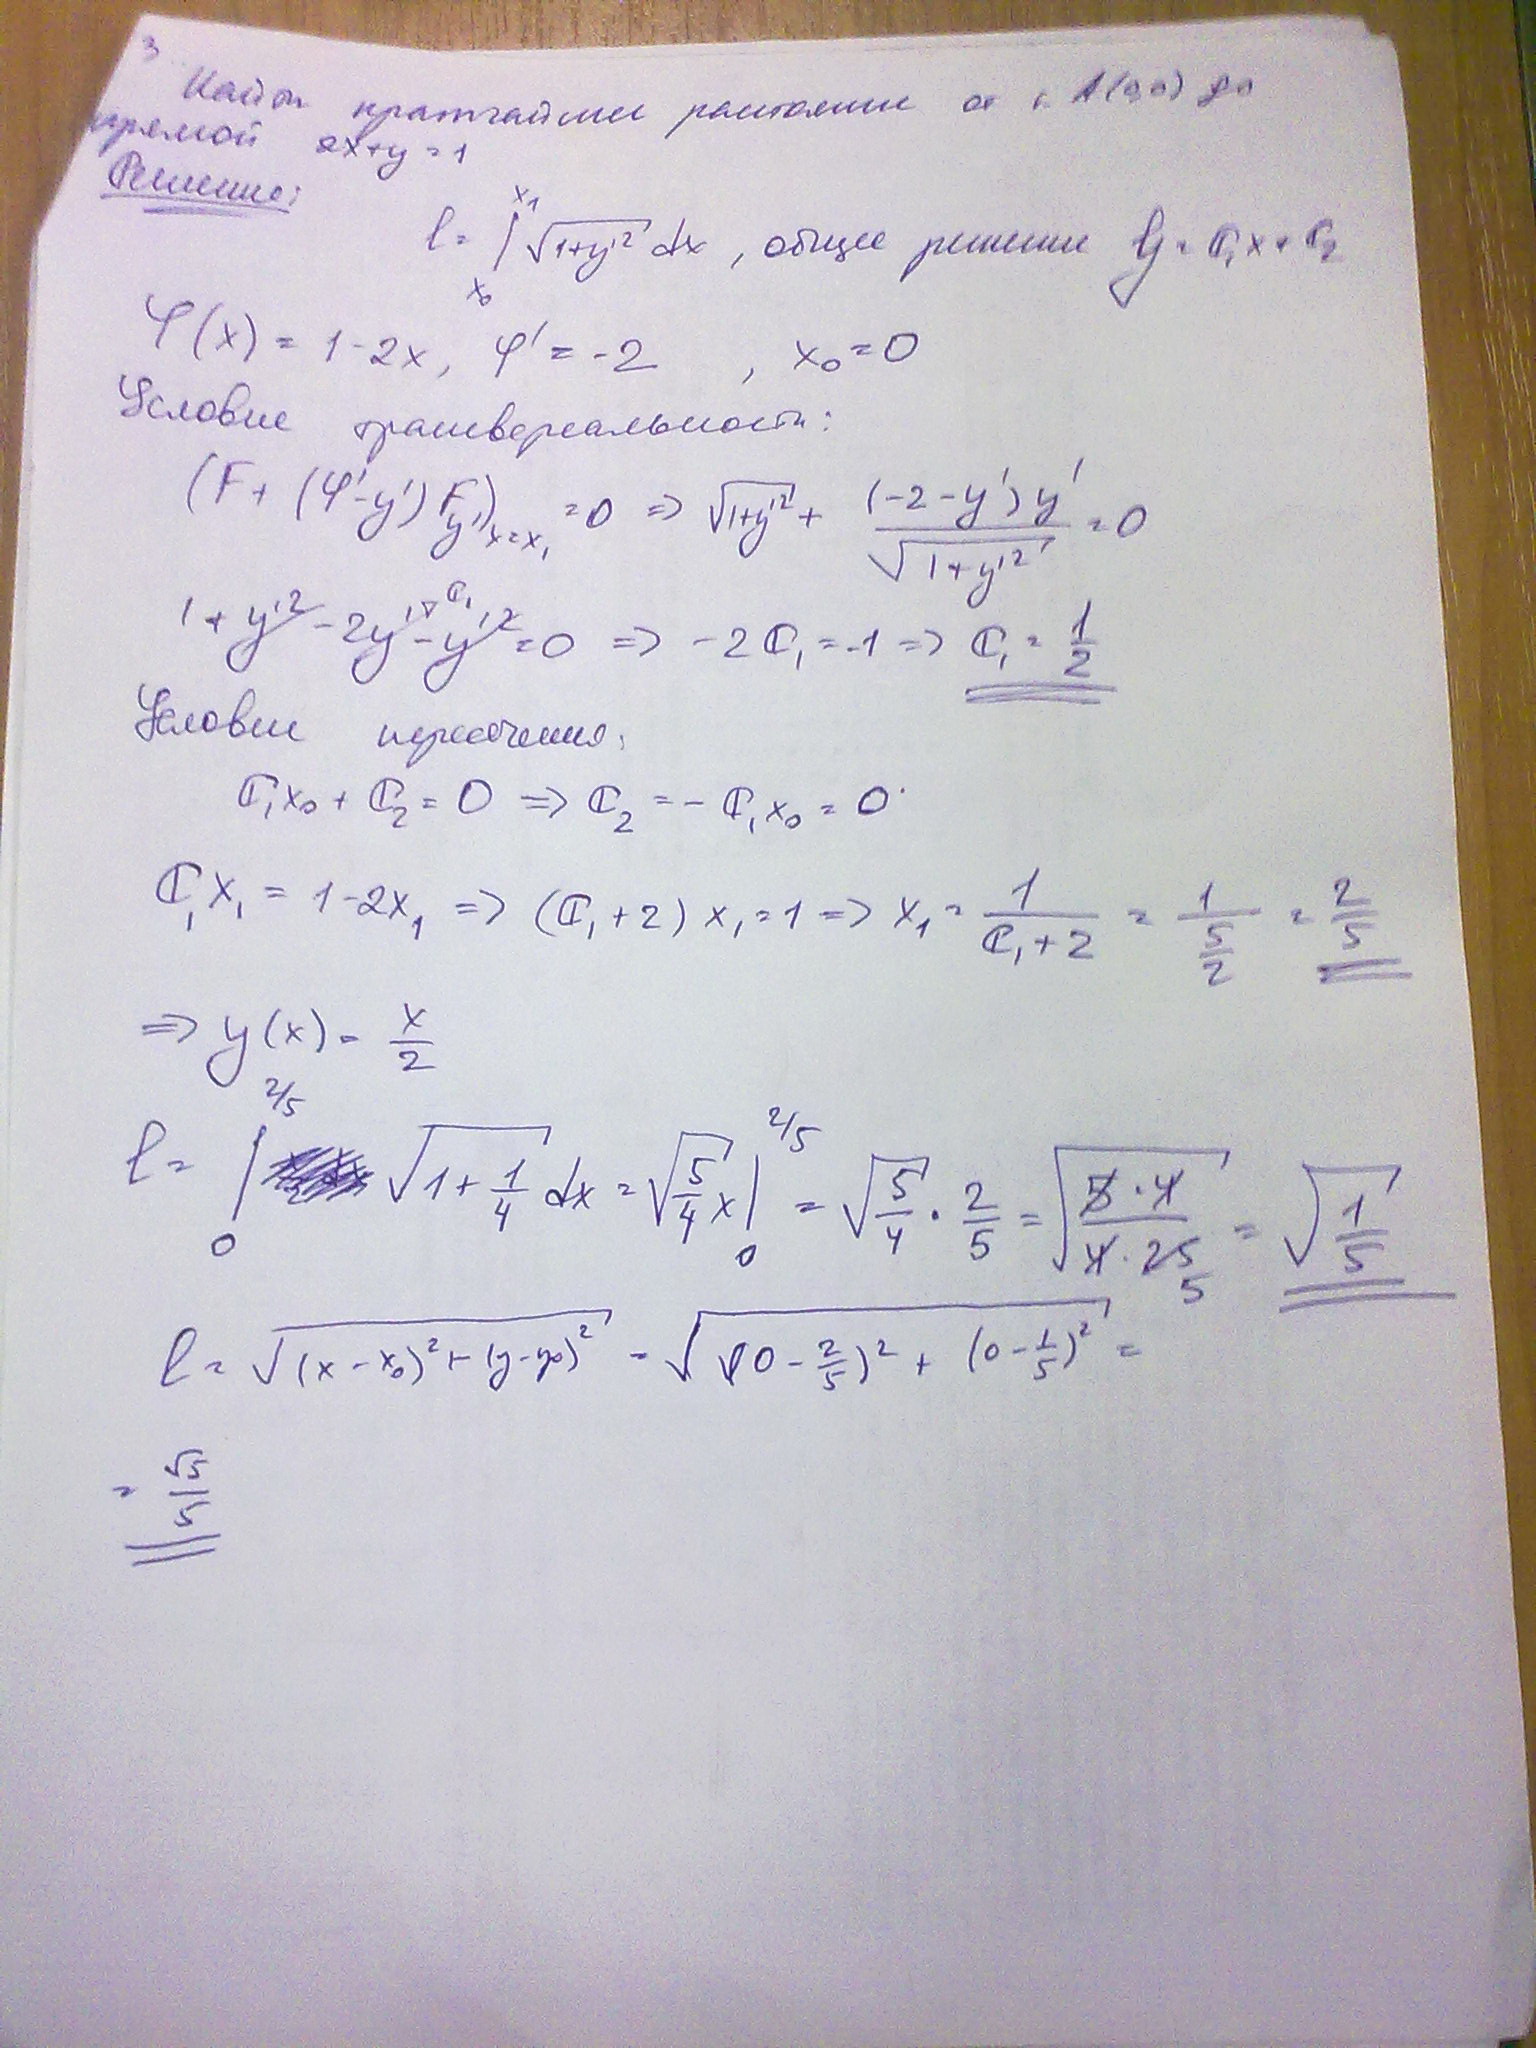 3
Найти кратчайшее расстояние от т. A(0,0) до
прямой 2x+y=1
Решение:
l = ∫_{x₀}^{x₁} √(1+y'²) dx, общее решение y = C₁x + C₂
φ(x) = 1-2x, φ' = -2 , x₀ = 0
Условие трансверсальности:
(F + (φ'-y') F_{y'})_{x=x₁} = 0 => √(1+y'²) + (-2-y')y' / √(1+y'²) = 0
1 + y'² - 2y' - y'² = 0 => -2C₁ = -1 => C₁ = 1/2
Условие пересечения:
C₁x₀ + C₂ = 0 => C₂ = -C₁x₀ = 0
C₁x₁ = 1-2x₁ => (C₁+2)x₁ = 1 => x₁ = 1/(C₁+2) = 1/(5/2) = 2/5
=> y(x) = x/2
l = ∫_0^{2/5} √(1+1/4) dx = √(5/4) x |_0^{2/5} = √(5/4) · 2/5 = √((5·4)/(4·25)) = √(1/5)
l = √((x-x₀)² + (y-y₀)²) = √((0-2/5)² + (0-1/5)²) =
= √5/5